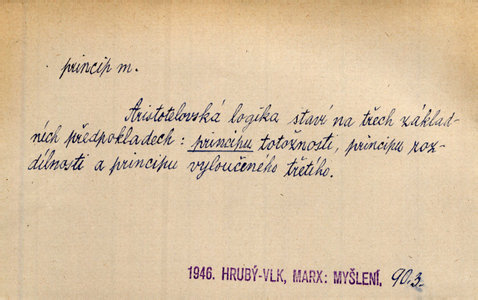 princip m.
Aristotelovská logika staví na třech základ-
ních předpokladech: principu totožnosti, principu roz-
dílnosti a principu vyloučeného třetího.
1946. HRUBÝ-VLK, MARX: MYŠLENÍ, 90.3.